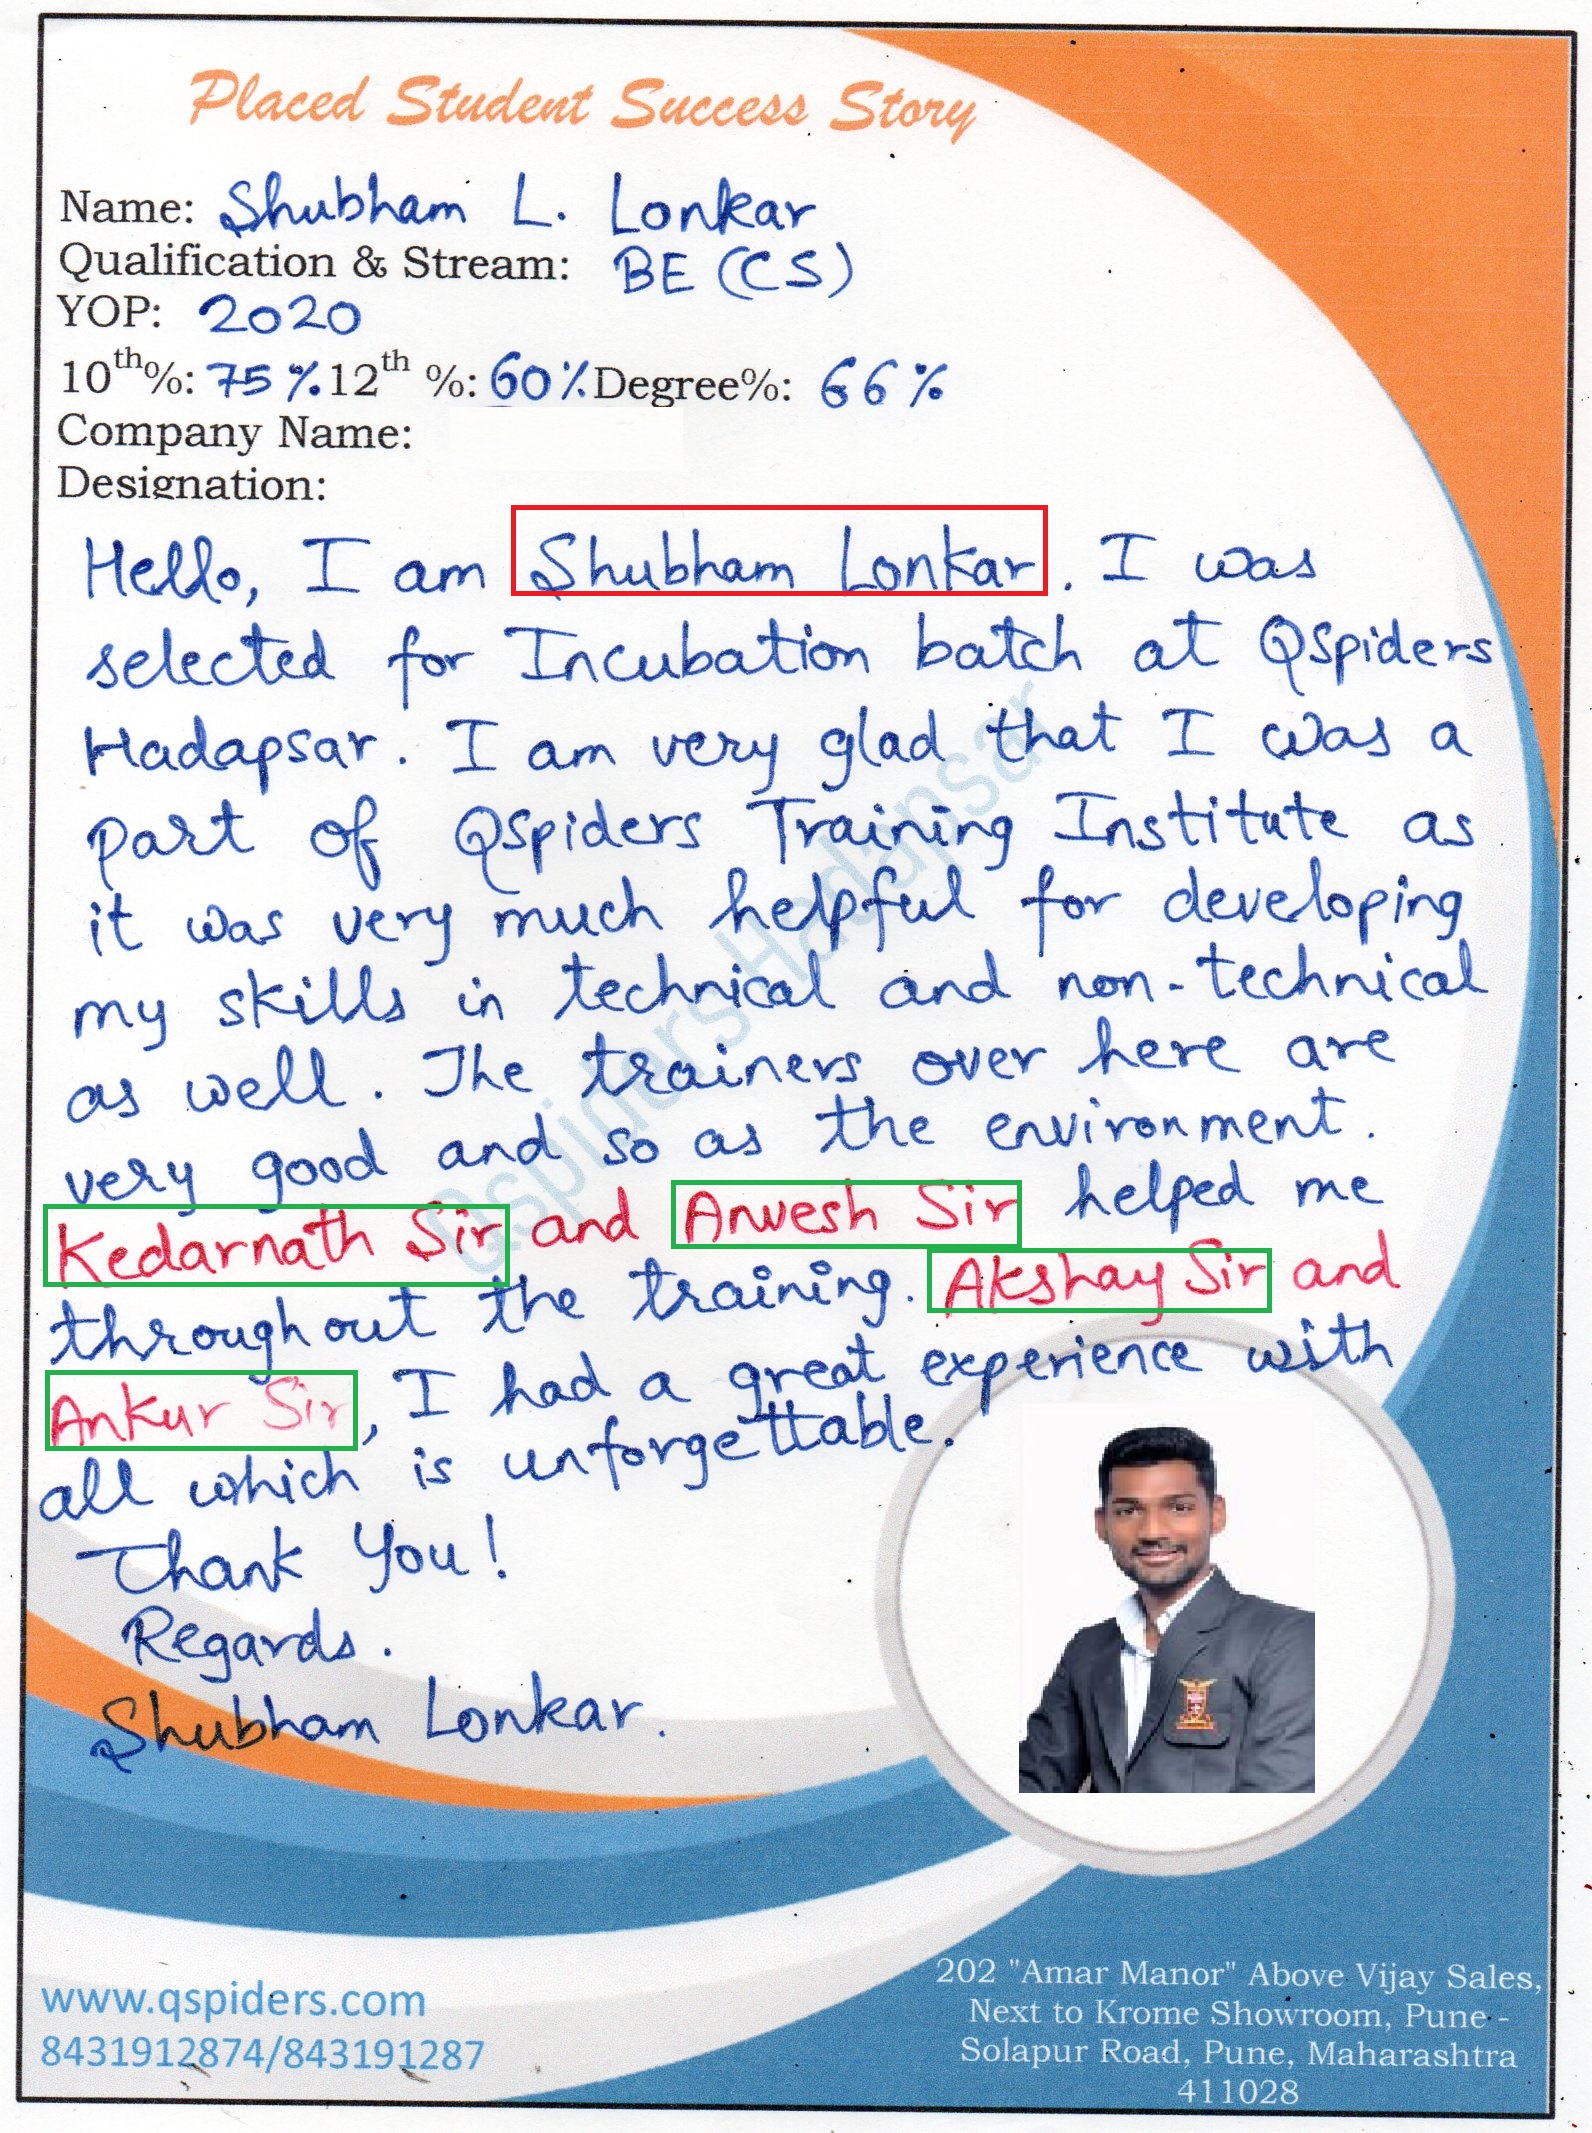 Placed Student Success Story
Name: Shubham L. Lonkar
Qualification & Stream: BE (CS)
YOP: 2020
10th%: 75% 12th %: 60% Degree%: 66%
Company Name:
Designation:
Hello, I am Shubham Lonkar. I was
selected for Incubation batch at QSpiders
Hadapsar. I am very glad that I was a
part of QSpiders Training Institute as
it was very much helpful for developing
my skills in technical and non-technical
as well. The trainers over here are
very good and so as the environment.
Kedarnath Sir and Anvesh Sir helped me
throughout the training. Akshay Sir and
Ankur Sir, I had a great experience with
all which is unforgettable.
Thank You!
Regards.
Shubham Lonkar.
Qspiders Hadapsar
www.qspiders.com
8431912874/843191287
202 "Amar Manor" Above Vijay Sales,
Next to Krome Showroom, Pune -
Solapur Road, Pune, Maharashtra
411028